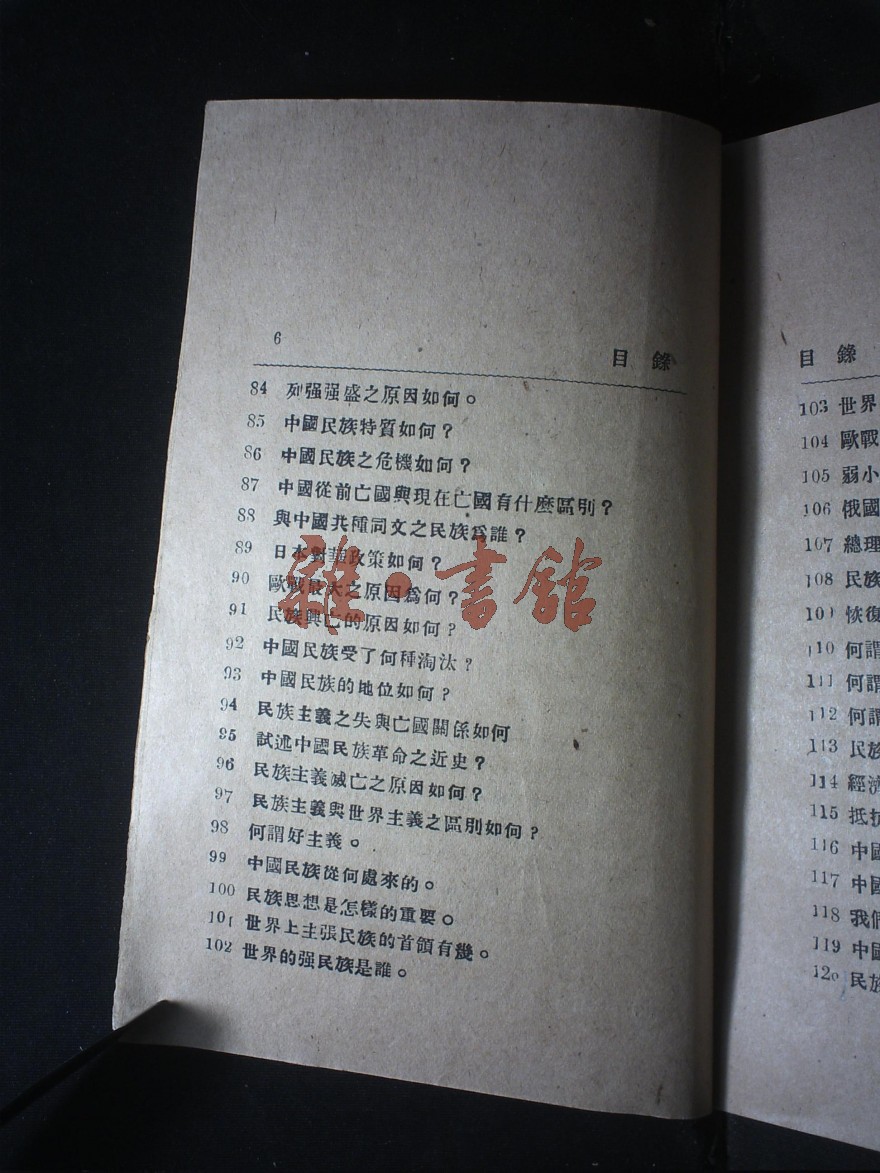 6
目錄
84 列强强盛之原因如何。
85 中國民族特質如何？
86 中國民族之危機如何？
87 中國從前亡國與現在亡國有什麽區別？
88 與中國共種同文之民族爲誰？
89 日本對華政策如何？
90 歐戰最大之原因爲何？
91 民族興亡的原因如何？
92 中國民族受了何種淘汰？
93 中國民族的地位如何？
94 民族主義之失與亡國關係如何
95 試述中國民族革命之近史？
96 民族主義滅亡之原因如何？
97 民族主義與世界主義之區別如何？
98 何謂好主義。
99 中國民族從何處來的。
100 民族思想是怎樣的重要。
101 世界上主張民族的首領有幾。
102 世界的强民族是誰。
雜·書館
目錄
103 世界
104 歐戰
105 弱小
106 俄國
107 總理
108 民族
109 恢復
110 何謂
111 何謂
112 何謂
113 民族
114 經濟
115 抵抗
116 中國
117 中國
118 我們
119 中國
120 民族